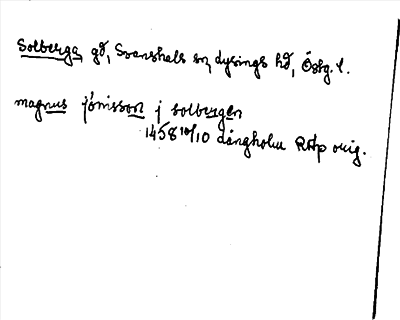 Solberga, gd, Svanshals sn, dysings hd, Östg. l.
magnus jönisson j solbergen
1458 10/10 dångholm RAp orig.